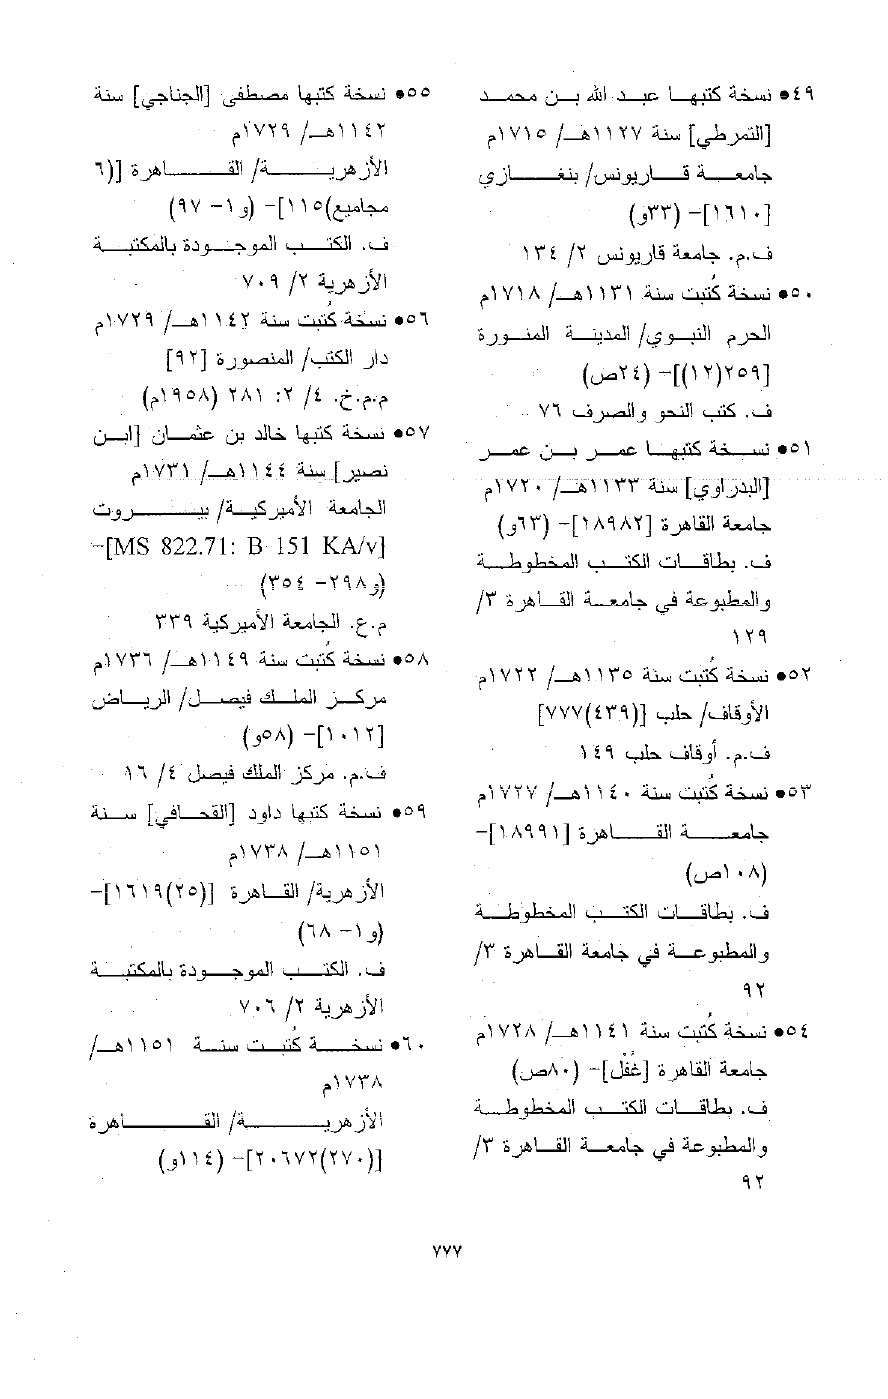 ٤٩• نسخة كتبها عبد الله بن محمد
[التمرطي] سنة ١١٢٧هـ/ ١٧١٥م
جامعة قاريونس/ بنغازي
[١٦١٠]- (٣٣و)
ف.م. جامعة قاريونس ٢/ ١٣٤
٥٠• نسخة كُتبت سنة ١١٣١هـ/ ١٧١٨م
الحرم النبوي/ المدينة المنورة
[٢٥٩(١٢)]- (٢٤ص)
ف. كتب النحو والصرف ٧٦
٥١• نسخة كتبها عمر بن عمر
[البدراوي] سنة ١١٣٣هـ/ ١٧٢٠م
جامعة القاهرة [١٨٩٨٢]- (٦٣و)
ف. بطاقات الكتب المخطوطة
والمطبوعة في جامعة القاهرة ٣/
١٢٩
٥٢• نسخة كُتبت سنة ١١٣٥هـ/ ١٧٢٢م
الأوقاف/ حلب [(٤٣٩)٧٧٧]
ف.م. أوقاف حلب ١٤٩
٥٣• نسخة كُتبت سنة ١١٤٠هـ/ ١٧٢٧م
جامعة القاهرة [١٨٩٩١]-
(١٠٨ص)
ف. بطاقات الكتب المخطوطة
والمطبوعة في جامعة القاهرة ٣/
٩٢
٥٤• نسخة كُتبت سنة ١١٤١هـ/ ١٧٢٨م
جامعة القاهرة [غُفْل]- (٨٠ص)
ف. بطاقات الكتب المخطوطة
والمطبوعة في جامعة القاهرة ٣/
٩٢
٥٥• نسخة كتبها مصطفى [الجناجي] سنة
١١٤٢هـ/ ١٧٢٩م
الأزهرية/ القاهرة [(٦
مجاميع)١١٥]- (و١- ٩٧)
ف. الكتب الموجودة بالمكتبة
الأزهرية ٢/ ٧٠٩
٥٦• نسخة كُتبت سنة ١١٤٢هـ/ ١٧٢٩م
دار الكتب/ المنصورة [٩٢]
م.م.خ. ٤/ ٢: ٢٨١ (١٩٥٨م)
٥٧• نسخة كتبها خالد بن عثمان [ابن
نصير] سنة ١١٤٤هـ/ ١٧٣١م
الجامعة الأميركية/ بيروت
[MS 822.71: B 151 KA/v]-
(و٢٩٨- ٣٥٤)
م.ع. الجامعة الأميركية ٣٣٩
٥٨• نسخة كُتبت سنة ١١٤٩هـ/ ١٧٣٦م
مركز الملك فيصل/ الرياض
[١٠١٢]- (٥٨و)
ف.م. مركز الملك فيصل ٤/ ١٦
٥٩• نسخة كتبها داود [القحافي] سنة
١١٥١هـ/ ١٧٣٨م
الأزهرية/ القاهرة [(٢٥)١٦١٩]-
(و١- ٦٨)
ف. الكتب الموجودة بالمكتبة
الأزهرية ٢/ ٧٠٦
٦٠• نسخة كُتبت سنة ١١٥١هـ/
١٧٣٨م
الأزهرية/ القاهرة
[(٢٧٠)٢٠٦٧٢]- (١١٤و)
٧٧٧